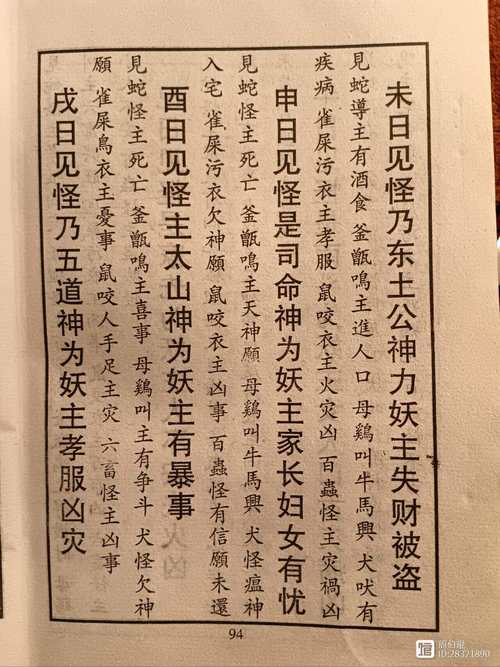 未日见怪乃东土公神力妖主失财被盗
見蛇導主有酒食 釜甑鳴主進人口 母鷄叫牛馬興 犬吠有
疾病 雀屎污衣主孝服 鼠咬衣主火灾凶 百蟲怪主灾禍凶
申日见怪是司命神为妖主家长妇女有忧
見蛇怪主死亡 釜甑鳴主天神願 母鷄叫牛馬興 犬怪瘟神
入宅 雀屎污衣欠神願 鼠咬衣主凶事 百蟲怪有信願未還
酉日见怪主太山神为妖主有暴事
見蛇怪主死亡 釜甑鳴主喜事 母鷄叫主有争斗 犬怪欠神
願 雀屎鳥衣主憂事 鼠咬人手足主灾 六畜怪主凶事
戌日见怪乃五道神为妖主孝服凶灾
94
ID:28371890